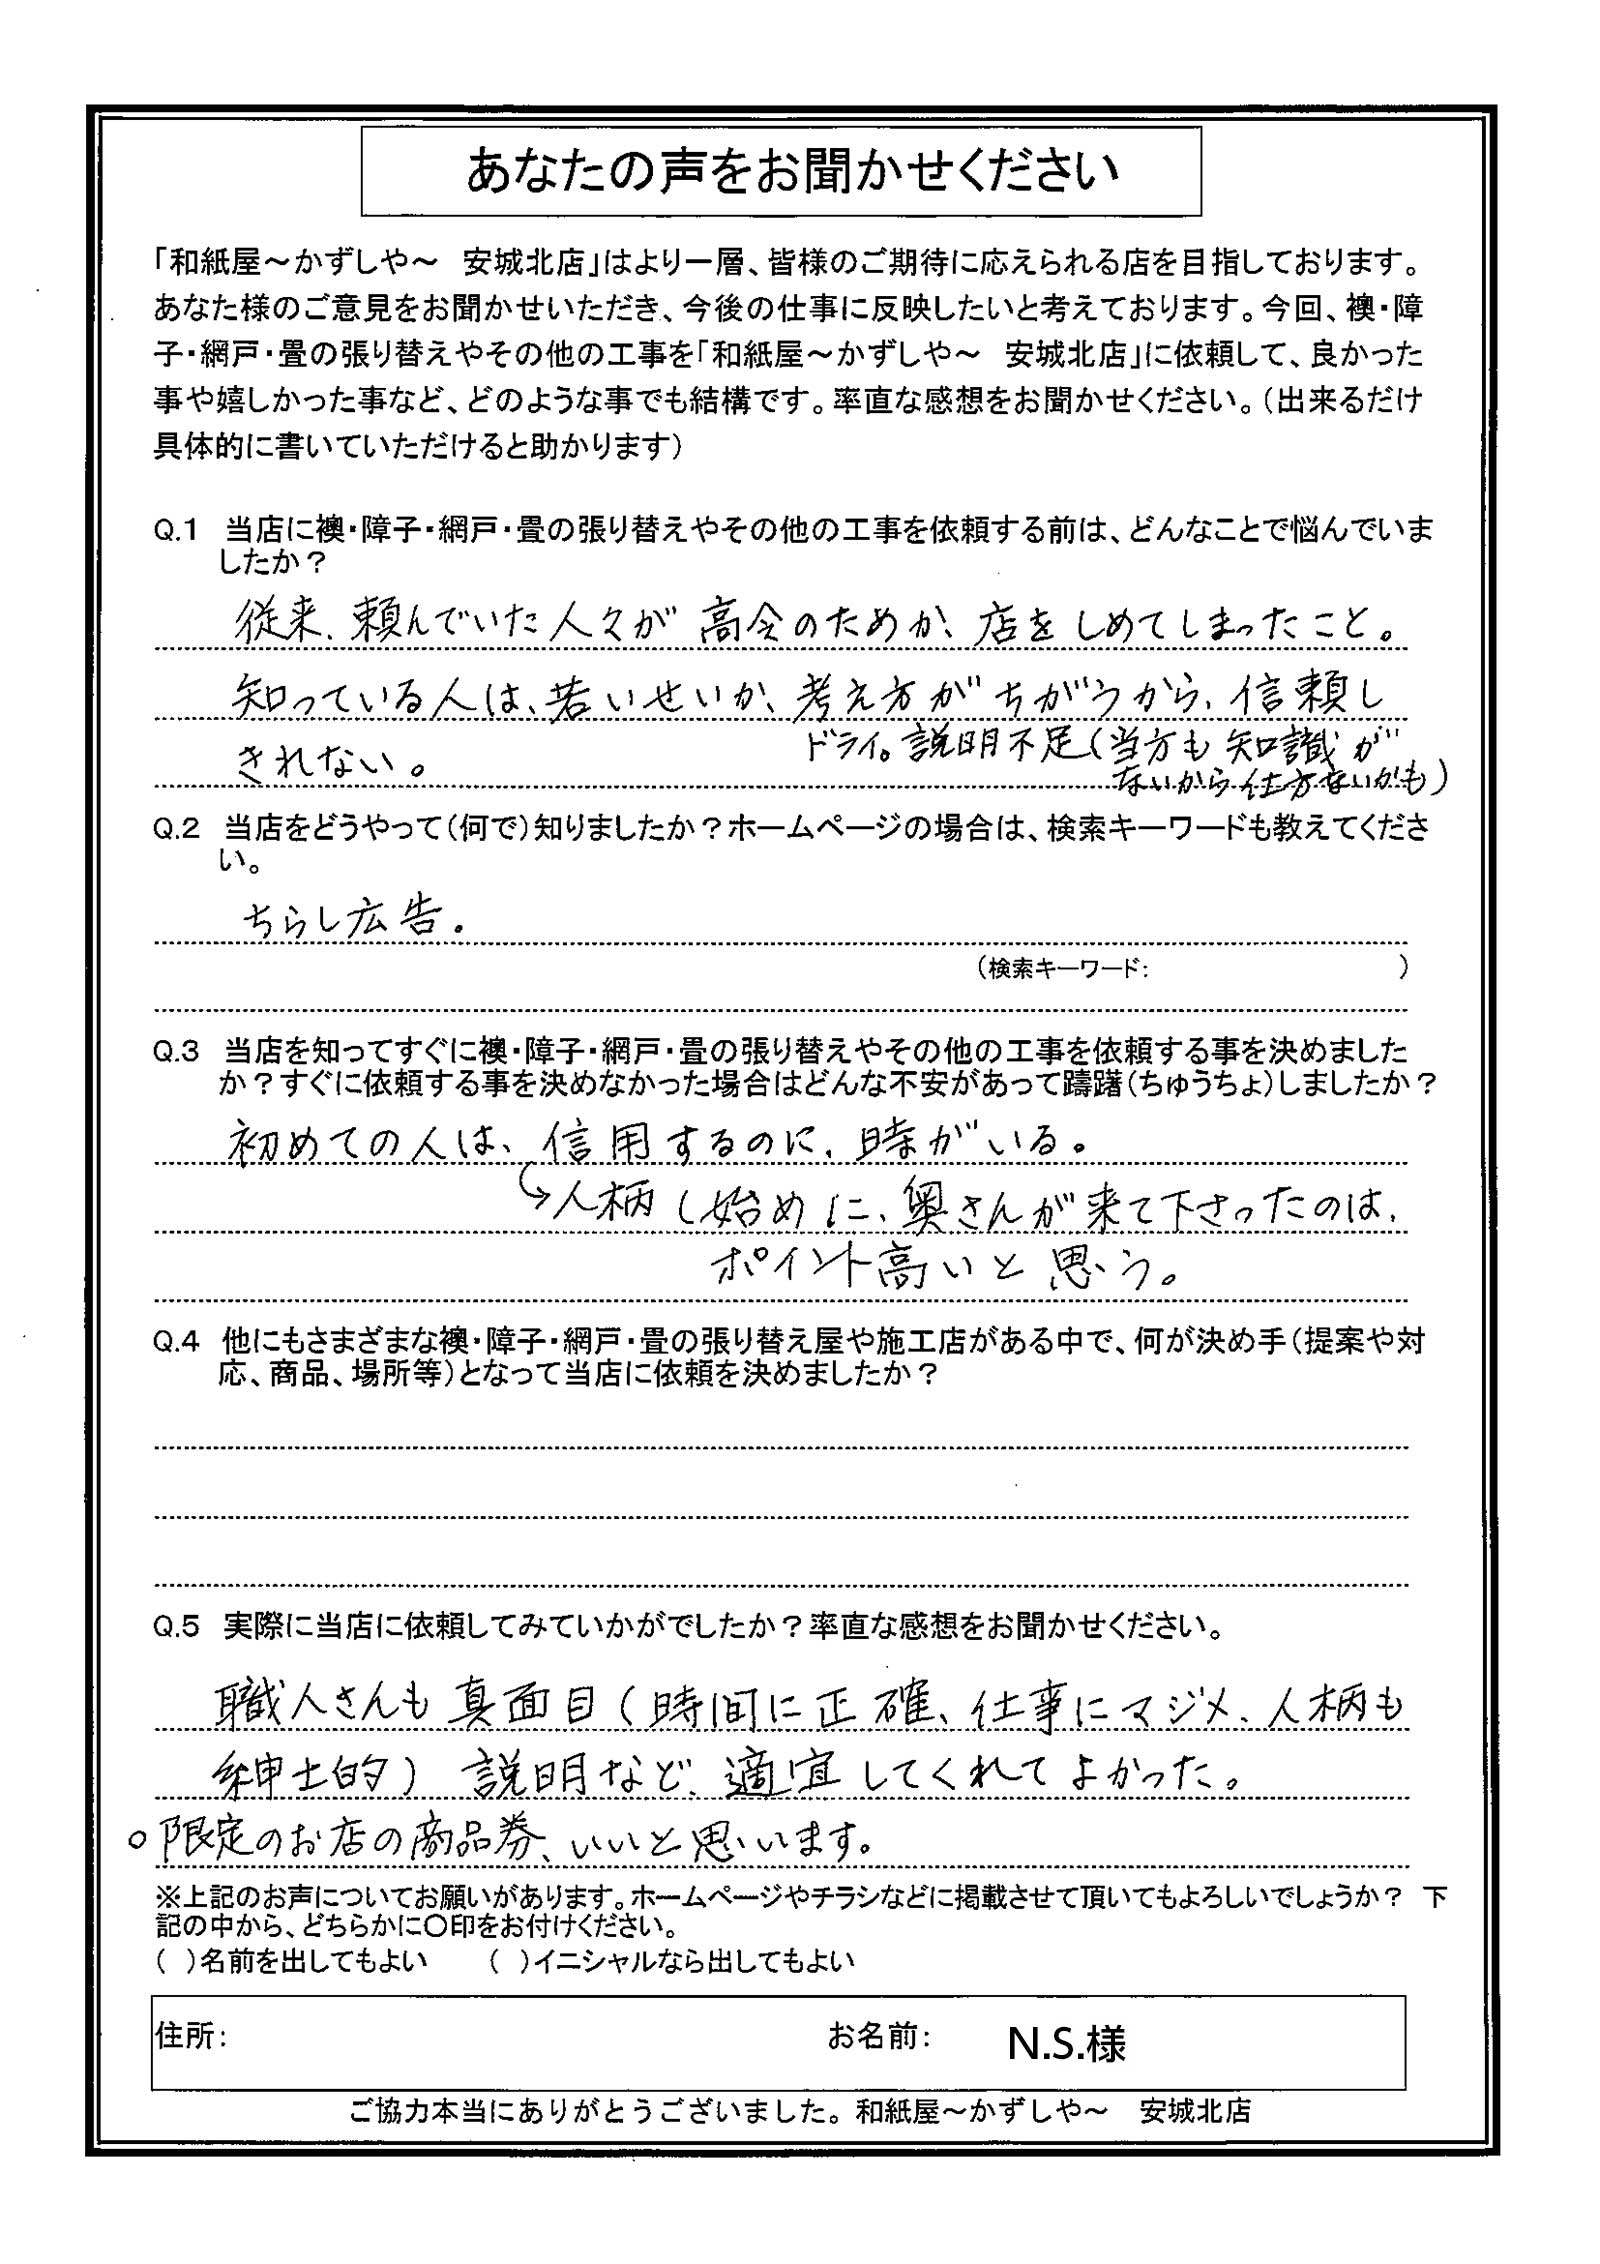 あなたの声をお聞かせください
「和紙屋～かずしや～　安城北店」はより一層、皆様のご期待に応えられる店を目指しております。
あなた様のご意見をお聞かせいただき、今後の仕事に反映したいと考えております。今回、襖・障
子・網戸・畳の張り替えやその他の工事を「和紙屋～かずしや～　安城北店」に依頼して、良かった
事や嬉しかった事など、どのような事でも結構です。率直な感想をお聞かせください。（出来るだけ
具体的に書いていただけると助かります）
Q.1　当店に襖・障子・網戸・畳の張り替えやその他の工事を依頼する前は、どんなことで悩んでいま
したか？
従来、頼んでいた人々が高令のためか、店をしめてしまったこと。
知っている人は、若いせいか、考え方がちがうから、信頼し
きれない。
ドライ。説明不足（当方も知識が
ないから仕方ないかも）
Q.2　当店をどうやって（何で）知りましたか？ホームページの場合は、検索キーワードも教えてくださ
い。
ちらし広告.
（検索キーワード：　　　　　）
Q.3　当店を知ってすぐに襖・障子・網戸・畳の張り替えやその他の工事を依頼する事を決めました
か？すぐに依頼する事を決めなかった場合はどんな不安があって躊躇（ちゅうちょ）しましたか？
初めての人は、信用するのに、時がいる。
↪人柄（始めに、奥さんが来て下さったのは、
ポイント高いと思う。
Q.4　他にもさまざまな襖・障子・網戸・畳の張り替え屋や施工店がある中で、何が決め手（提案や対
応、商品、場所等）となって当店に依頼を決めましたか？
Q.5　実際に当店に依頼してみていかがでしたか？率直な感想をお聞かせください。
職人さんも真面目（時間に正確、仕事にマジメ、人柄も
紳士的）説明など、適宜してくれてよかった。
○限定のお店の商品券、いいと思います。
※上記のお声についてお願いがあります。ホームページやチラシなどに掲載させて頂いてもよろしいでしょうか？　下
記の中から、どちらかに〇印をお付けください。
（　）名前を出してもよい　　（　）イニシャルなら出してもよい
住所：　　お名前：　N.S.様
ご協力本当にありがとうございました。和紙屋～かずしや～　安城北店